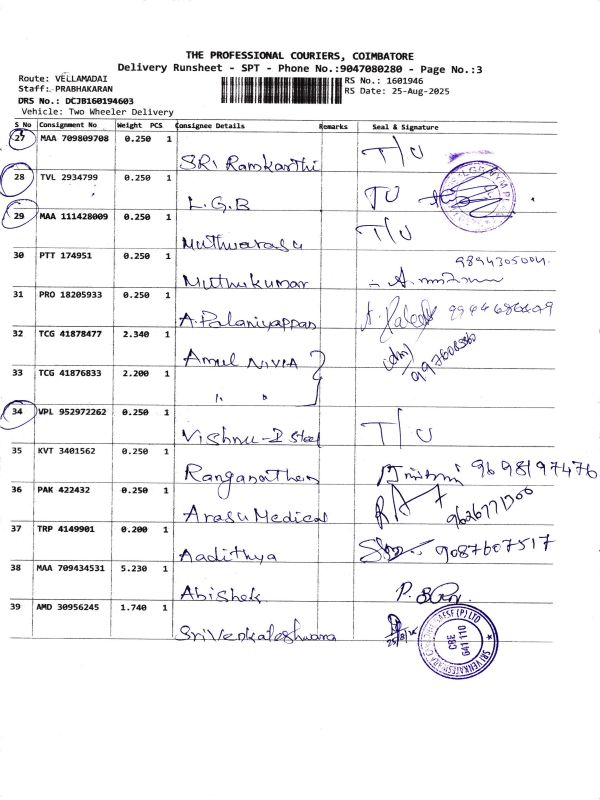 THE PROFESSIONAL COURIERS, COIMBATORE
Delivery Runsheet - SPT - Phone No.:9047080280 - Page No.:3
Route: VELLAMADAI
RS No.: 1601946
Staff: PRABHAKARAN
RS Date: 25-Aug-2025
DRS No.: DCJB160194603
Vehicle: Two Wheeler Delivery
S No Consignment No Weight PCS Consignee Details Remarks Seal & Signature
27 MAA 709809708 0.250 1 SRI Ramkarthi T/U
28 TVL 2934799 0.250 1 L.G.B TU
29 MAA 111428009 0.250 1 Muthuarasu T/U
30 PTT 174951 0.250 1 Muthukumar 9894305004.
31 PRO 18205933 0.250 1 A.Palaniyappan
32 TCG 41878477 2.340 1 Amul NIVIA
33 TCG 41876833 2.200 1 " "
34 VPL 952972262 0.250 1 Vishnu-I Steel T/U
35 KVT 3401562 0.250 1 Ranganathan 9698197476
36 PAK 422432 0.250 1 Arasu Medical
37 TRP 4149901 0.200 1 Aadithya 9087607517
38 MAA 709434531 5.230 1 Abishek
39 AMD 30956245 1.740 1 SriVenkateshwara 25/8/25
CBE
641 110